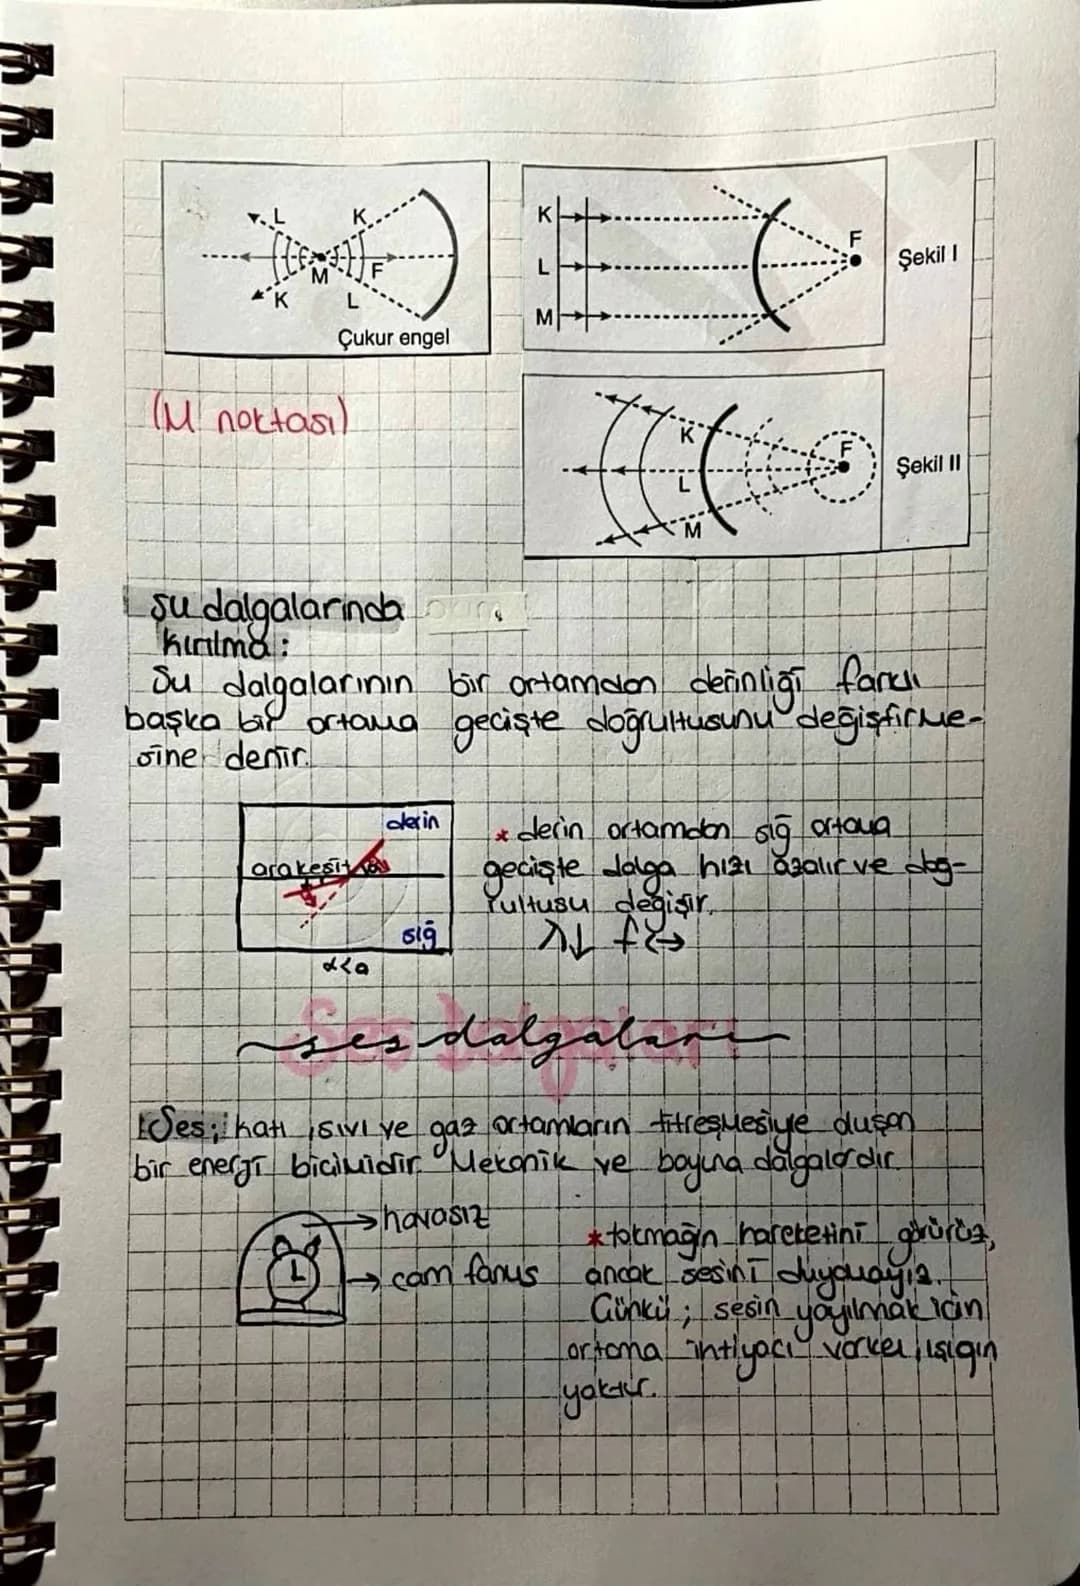 L K
M F
K L
Çukur engel
K
L
M
F
Şekil I
(M noktası)
K
L
M
F
Şekil II
su dalgalarında
kırılma:
Su dalgalarının bir ortamdan derinliği farklı
başka bir ortama geçişte doğrultusunu değiştirme-
sine denir.
derin
arakesit
sığ
α<a
* derin ortamdan sığ ortama
geçişte dalga hızı azalır ve doğ-
rultusu değişir.
λ↓ f→
Ses Dalgaları
ses dalgaları
Ses; katı, sıvı ve gaz ortamların titreşmesiyle oluşan
bir enerji biçimidir. Mekanik ve boyuna dalgalardır.
→havasız
→ cam fanus
* tokmağın hareketini görürüz,
ancak sesini duymayız.
Çünkü; sesin yayılmak için
ortama ihtiyacı varken, ışığın
yoktur.